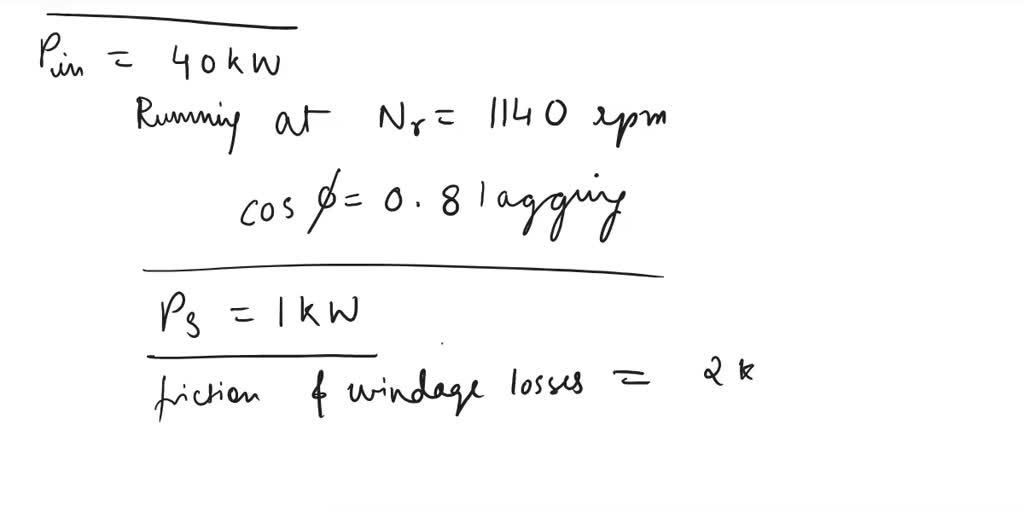 Pin = 40kW
Running at Nr = 1140 rpm
cos ϕ = 0.8 lagging
Ps = 1kW
friction & windage losses = 2k